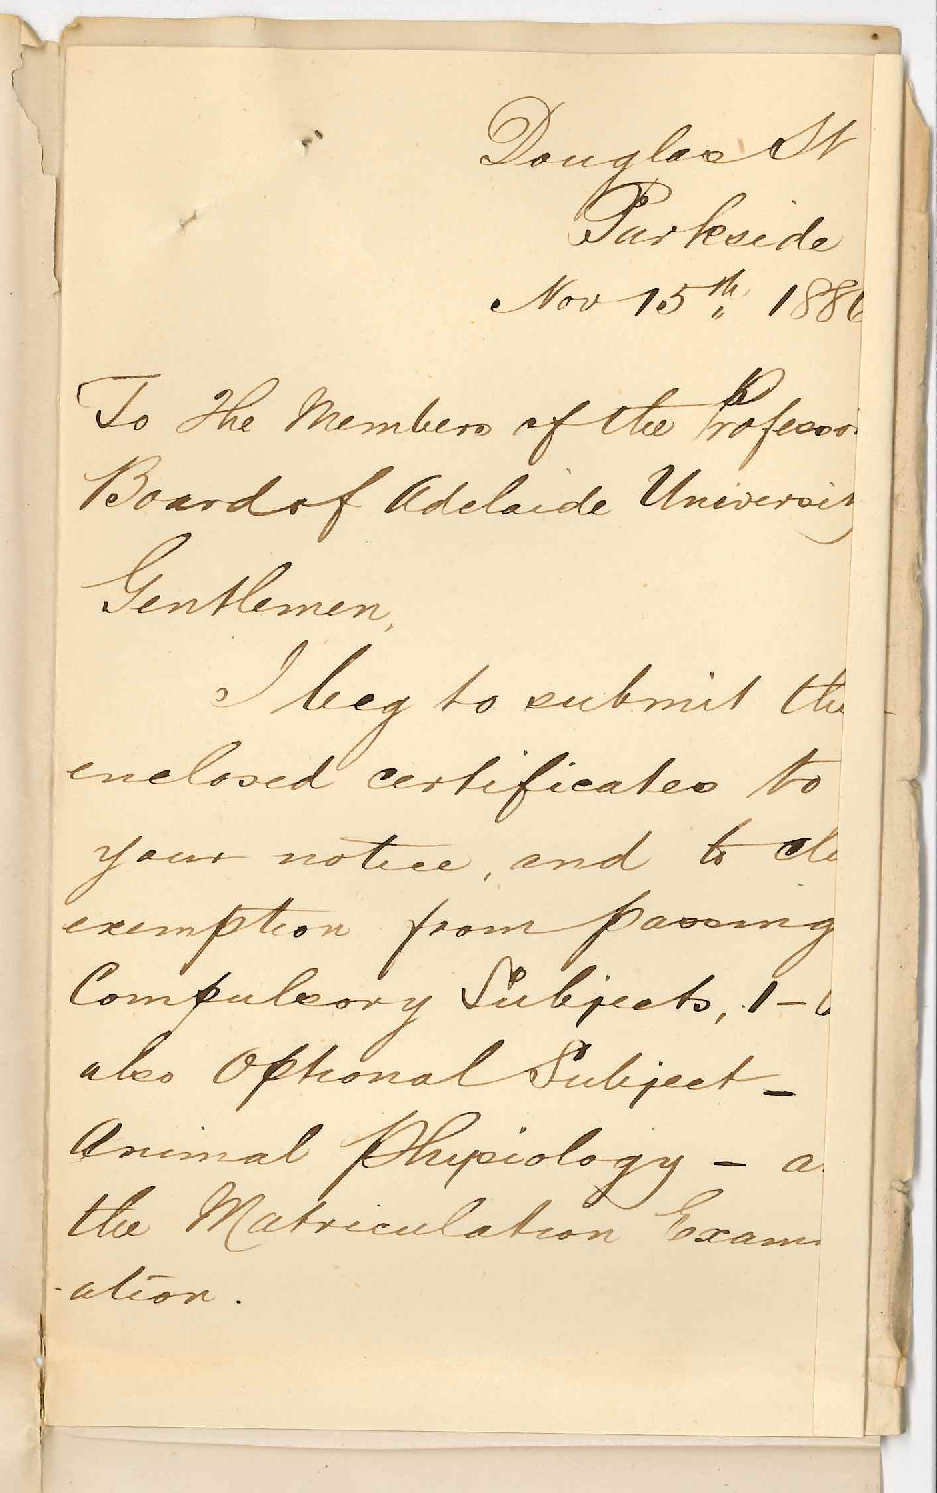 Douglas St
Parkside
Nov 15th 188
To The Members of the Profesor
Board of Adelaide University
Gentlemen,
I beg to submit the
enclosed certificates to
your notice, and to cla
exemption from passing
Compulsory Subjects, 1 –
also Optional Subject –
Animal Physiology – a
the Matriculation Exam
-ation.